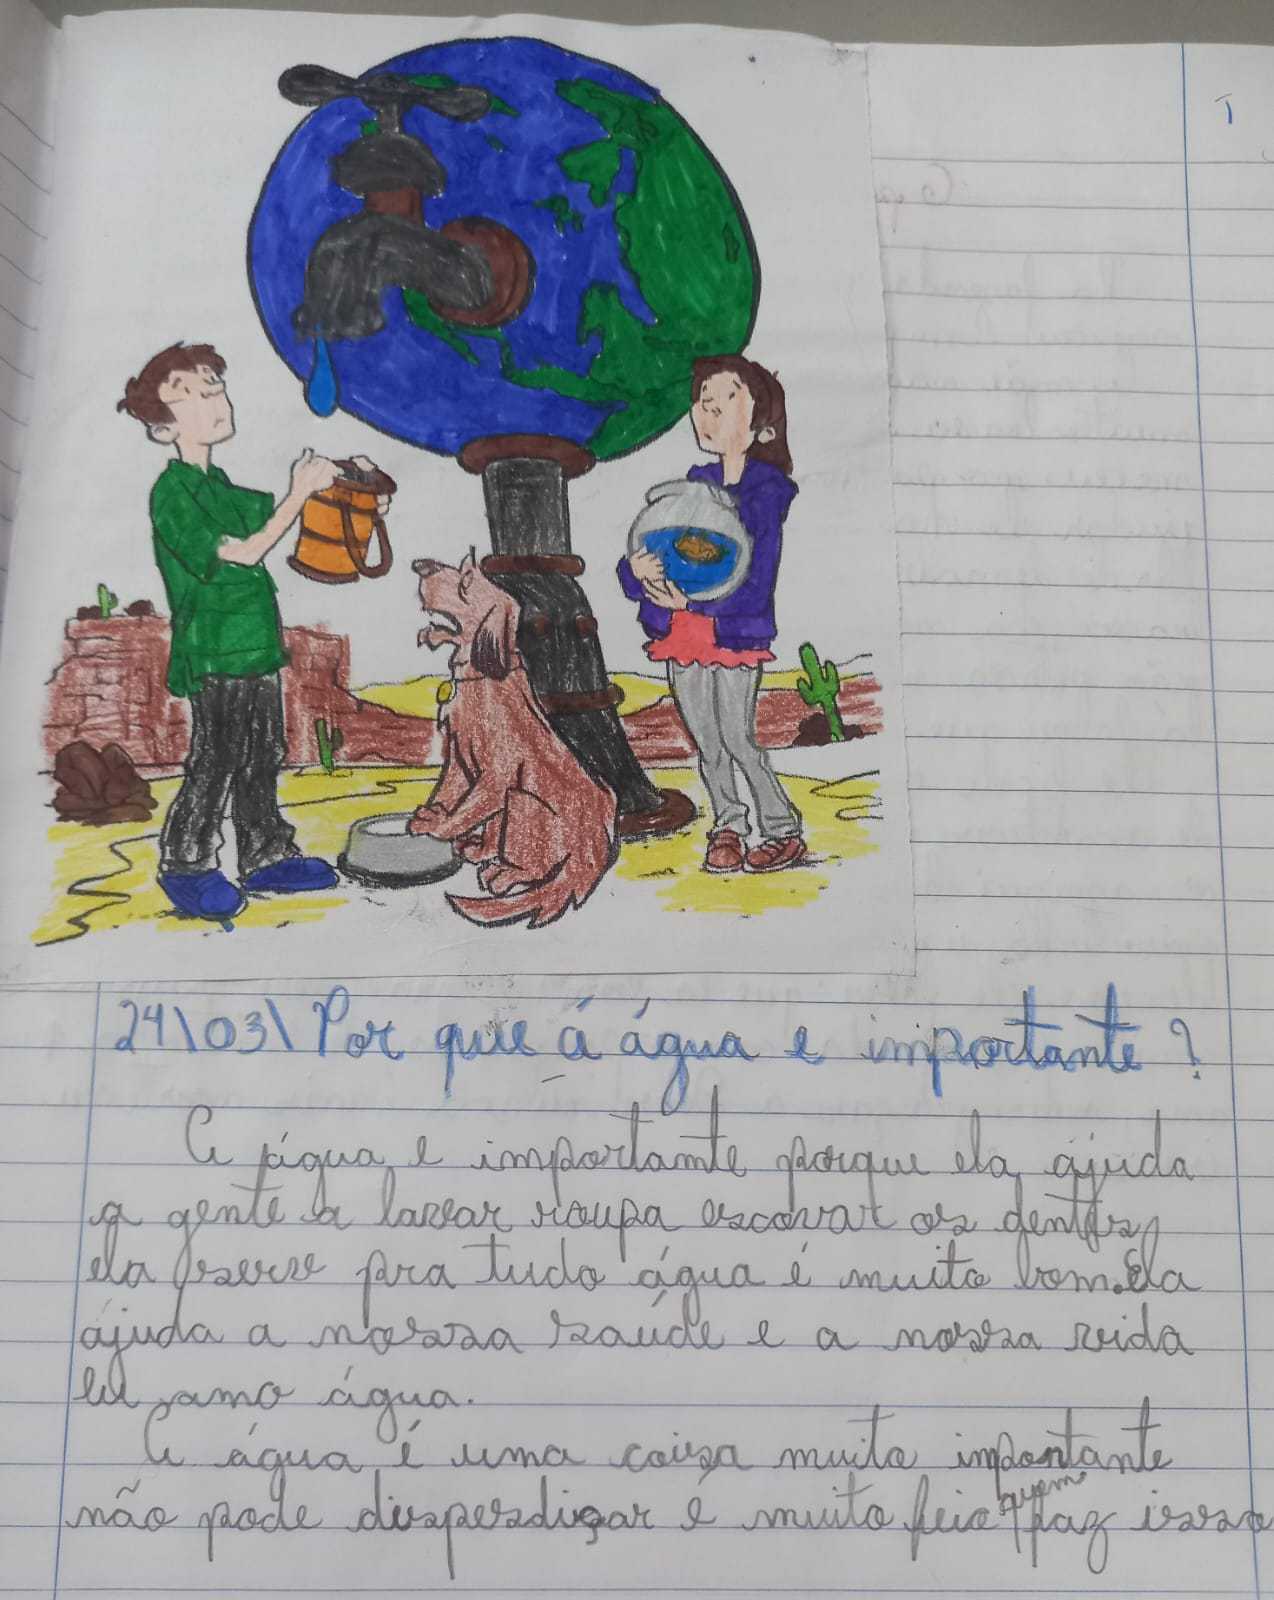 24\03\ Por que á água e importante?
A água e importante porque ela ájuda
a gente a lavar roupa escovar os dentes,
ela serve pra tudo água é muito bom. Ela
ájuda a nossa saúde e a nossa vida
eu amo água.
A água é uma coisa muito importante
não pode disperdiçar é muito feio quem faz isso